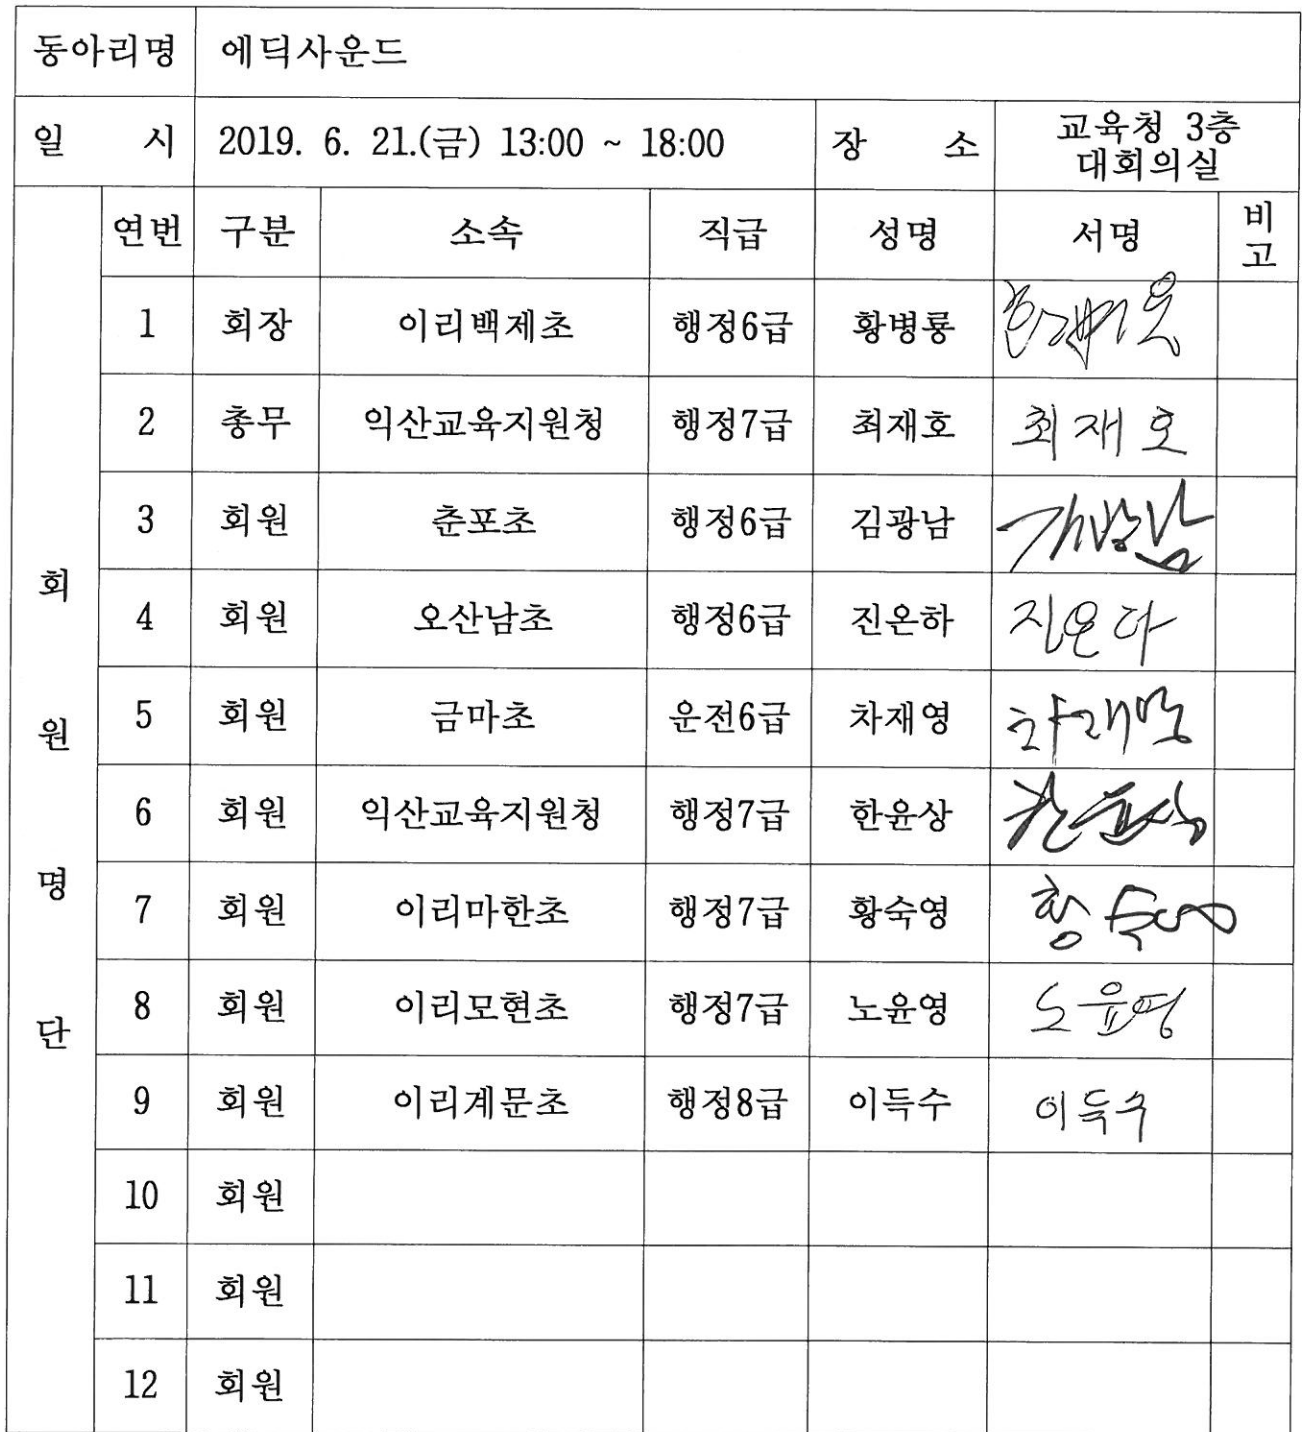 동아리명 에딕사운드
일 시 2019. 6. 21.(금) 13:00 ~ 18:00 장 소 교육청 3층
대회의실
회원명단
연번 구분 소속 직급 성명 서명 비고
1 회장 이리백제초 행정6급 황병룡
2 총무 익산교육지원청 행정7급 최재호 최재호
3 회원 춘포초 행정6급 김광남 김광남
4 회원 오산남초 행정6급 진온하 진온하
5 회원 금마초 운전6급 차재영 차재영
6 회원 익산교육지원청 행정7급 한윤상 한윤상
7 회원 이리마한초 행정7급 황숙영 황숙영
8 회원 이리모현초 행정7급 노윤영 노윤영
9 회원 이리계문초 행정8급 이득수 이득수
10 회원
11 회원
12 회원